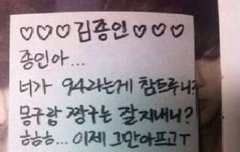 ♡♡♡김종인♡♡♡
종인아...
너가 94라는게 참트루니?
몽구랑 짱구는 잘지내니?
ㅎㅎㅎ... 이제 그만아프고ㅜ